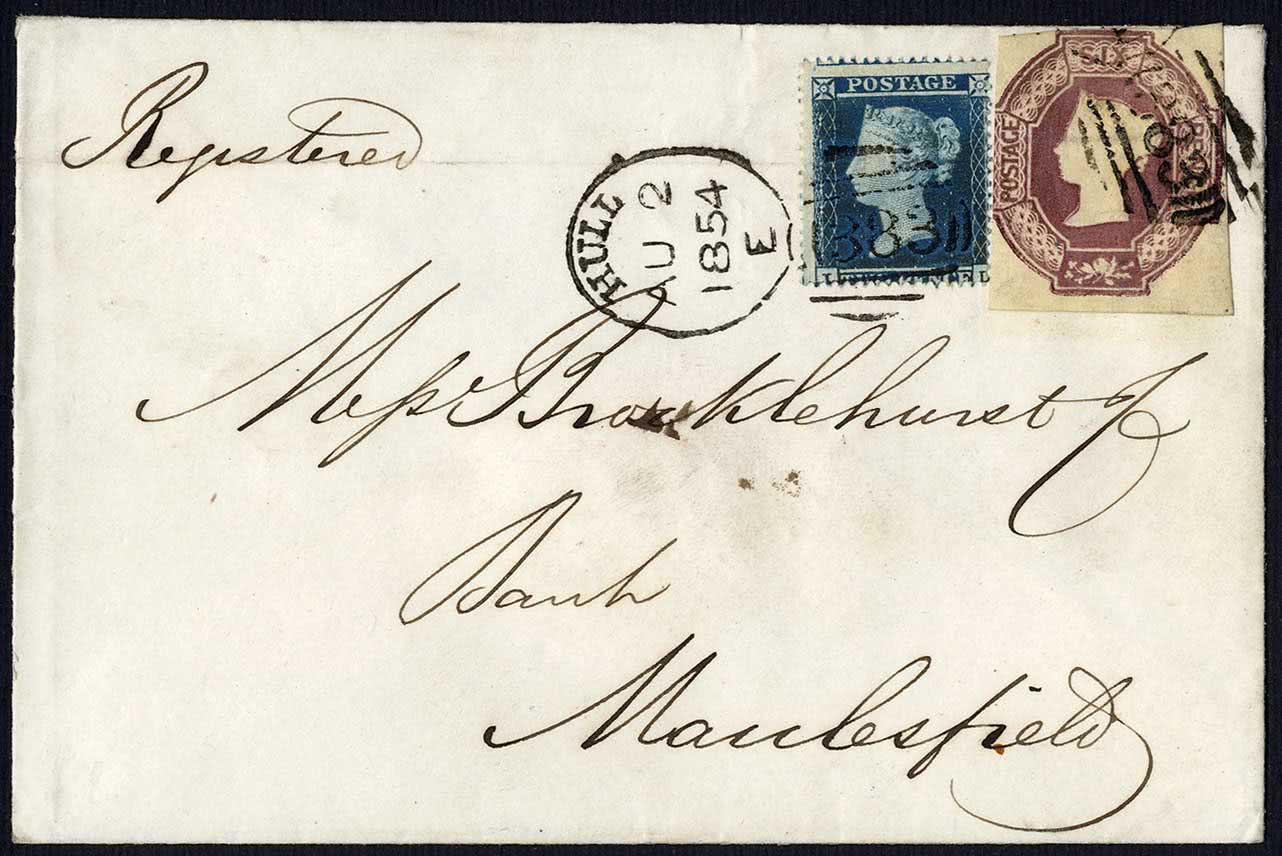 Registered
POSTAGE
SIX
POSTAGE
HULL
AU 2
1854
E
383
383
L L
Messrs Brocklehurst &
Bank
Macclesfield